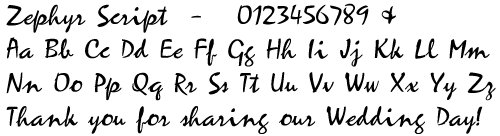 Zephyr Script - 0123456789 &
Aa Bb Cc Dd Ee Ff Gg Hh Ii Jj Kk Ll Mm
Nn Oo Pp Qq Rr Ss Tt Uu Vv Ww Xx Yy Zz
Thank you for sharing our Wedding Day!